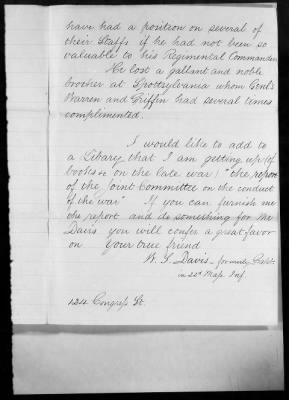 have had a position on several of
their Staffs if he had not been so
valuable to his Regimental Commander
He lost a gallant and noble
brother at Spottsylvania whom Genl's
Warren and Griffin had several times
complimented.
I would like to add to
a Libary that I am getting up (of
books on the late war) "the report
of the Joint Committee on the conduct
of the war" If you can furnish me
the report and do something for Mr
Davis you will confer a great favor
on Your true friend
W. S. Davis - formerly Capt.
in 22d Mass Inf.
124 Congress St.